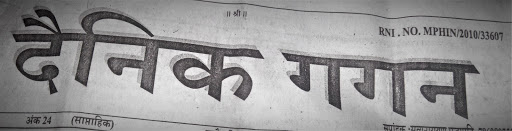 ॥ श्री ॥
RNI . NO. MPHIN/2010/33607
दैनिक गगन
अंक 24 (साप्ताहिक)